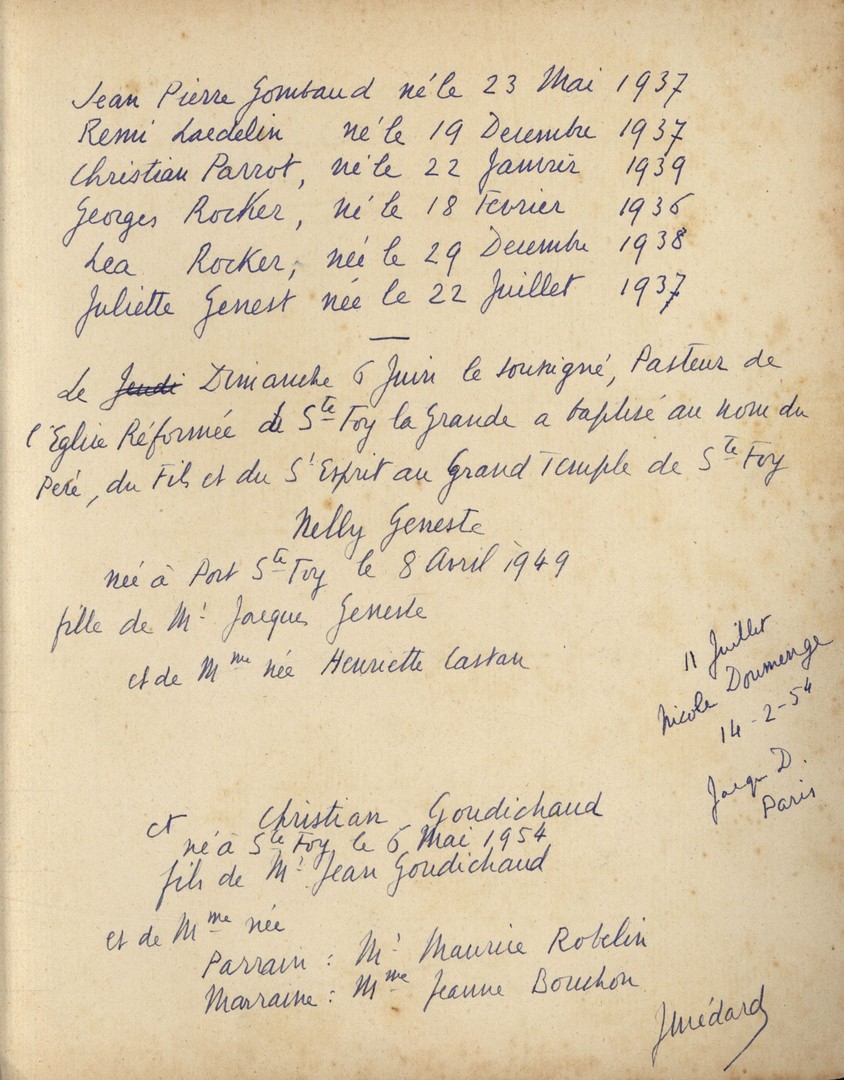 Jean Pierre Gombaud né le 23 Mai 1937
Remi Laedelin né le 19 Decembre 1937
Christian Parrot, né le 22 Janvier 1939
Georges Rocker, né le 18 Fevrier 1936
Lea Rocker, née le 29 Decembre 1938
Juliette Genest née le 22 Juillet 1937
Le Jeudi Dimanche 6 Juin le soussigné, Pasteur de
l'Eglise Réformée de Ste Foy la Grande a baptisé au nom du
Père, du Fils et du St Esprit au Grand Temple de Ste Foy
Nelly Geneste
née à Port Ste Foy le 8 Avril 1949
fille de Mr Jacques Geneste
et de Mme née Henriette Castan
11 Juillet
Nicole Doumenge
14-2-54
D.
Paris
et Christian Goudichaud
né à Ste Foy le 6 Mai 1954
fils de Mr Jean Goudichaud
et de Mme née
Parrain : Mr Maurice Robelin
Marraine : Mme Jeanne Bouchon
JMédard